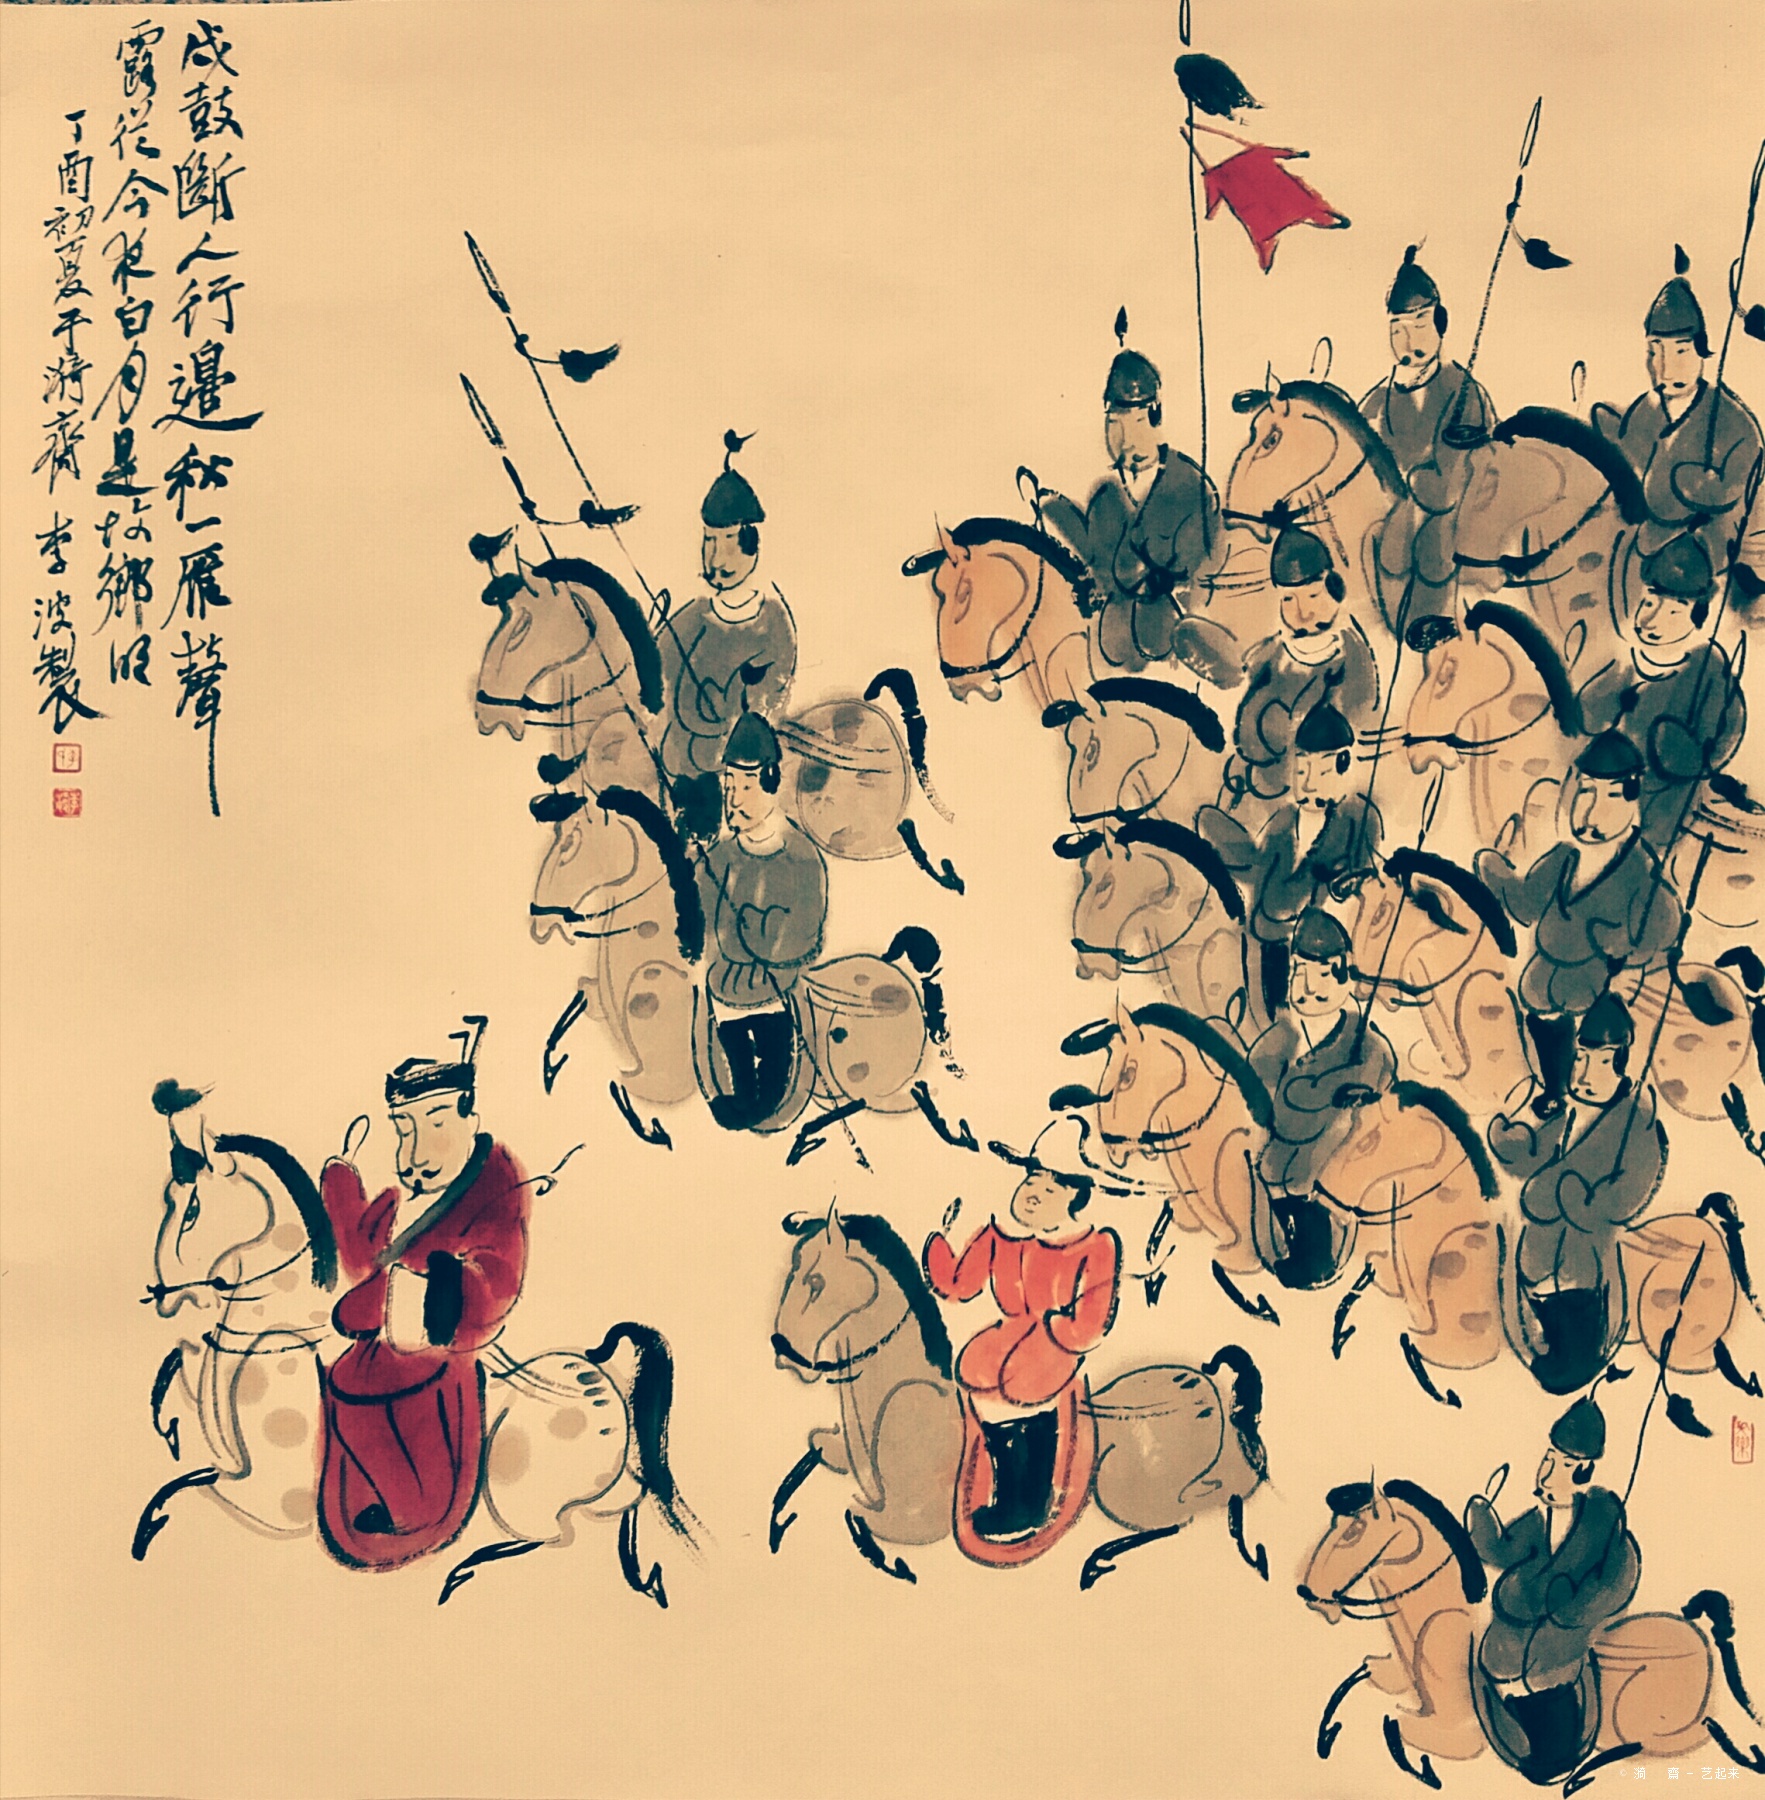 戍鼓斷人行邊秋一雁聲
露從今夜白月是故鄉明
丁酉初夏于漪齋 李波製
© 漪 齋 - 艺起来